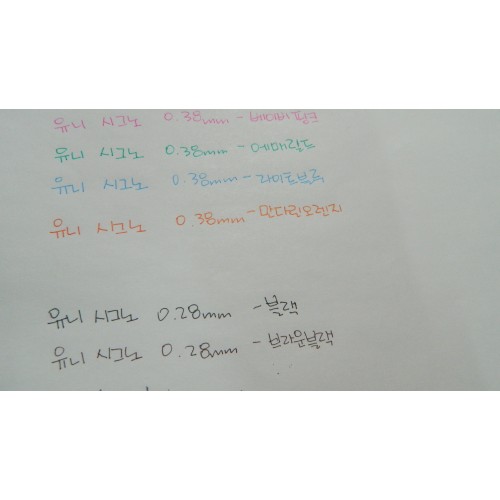 유니 시그노 0.38mm - 베이비핑크
유니 시그노 0.38mm - 에메랄드
유니 시그노 0.38mm - 라이트블루
유니 시그노 0.38mm - 만다린오렌지
유니 시그노 0.28mm - 블랙
유니 시그노 0.28mm - 브라운블랙